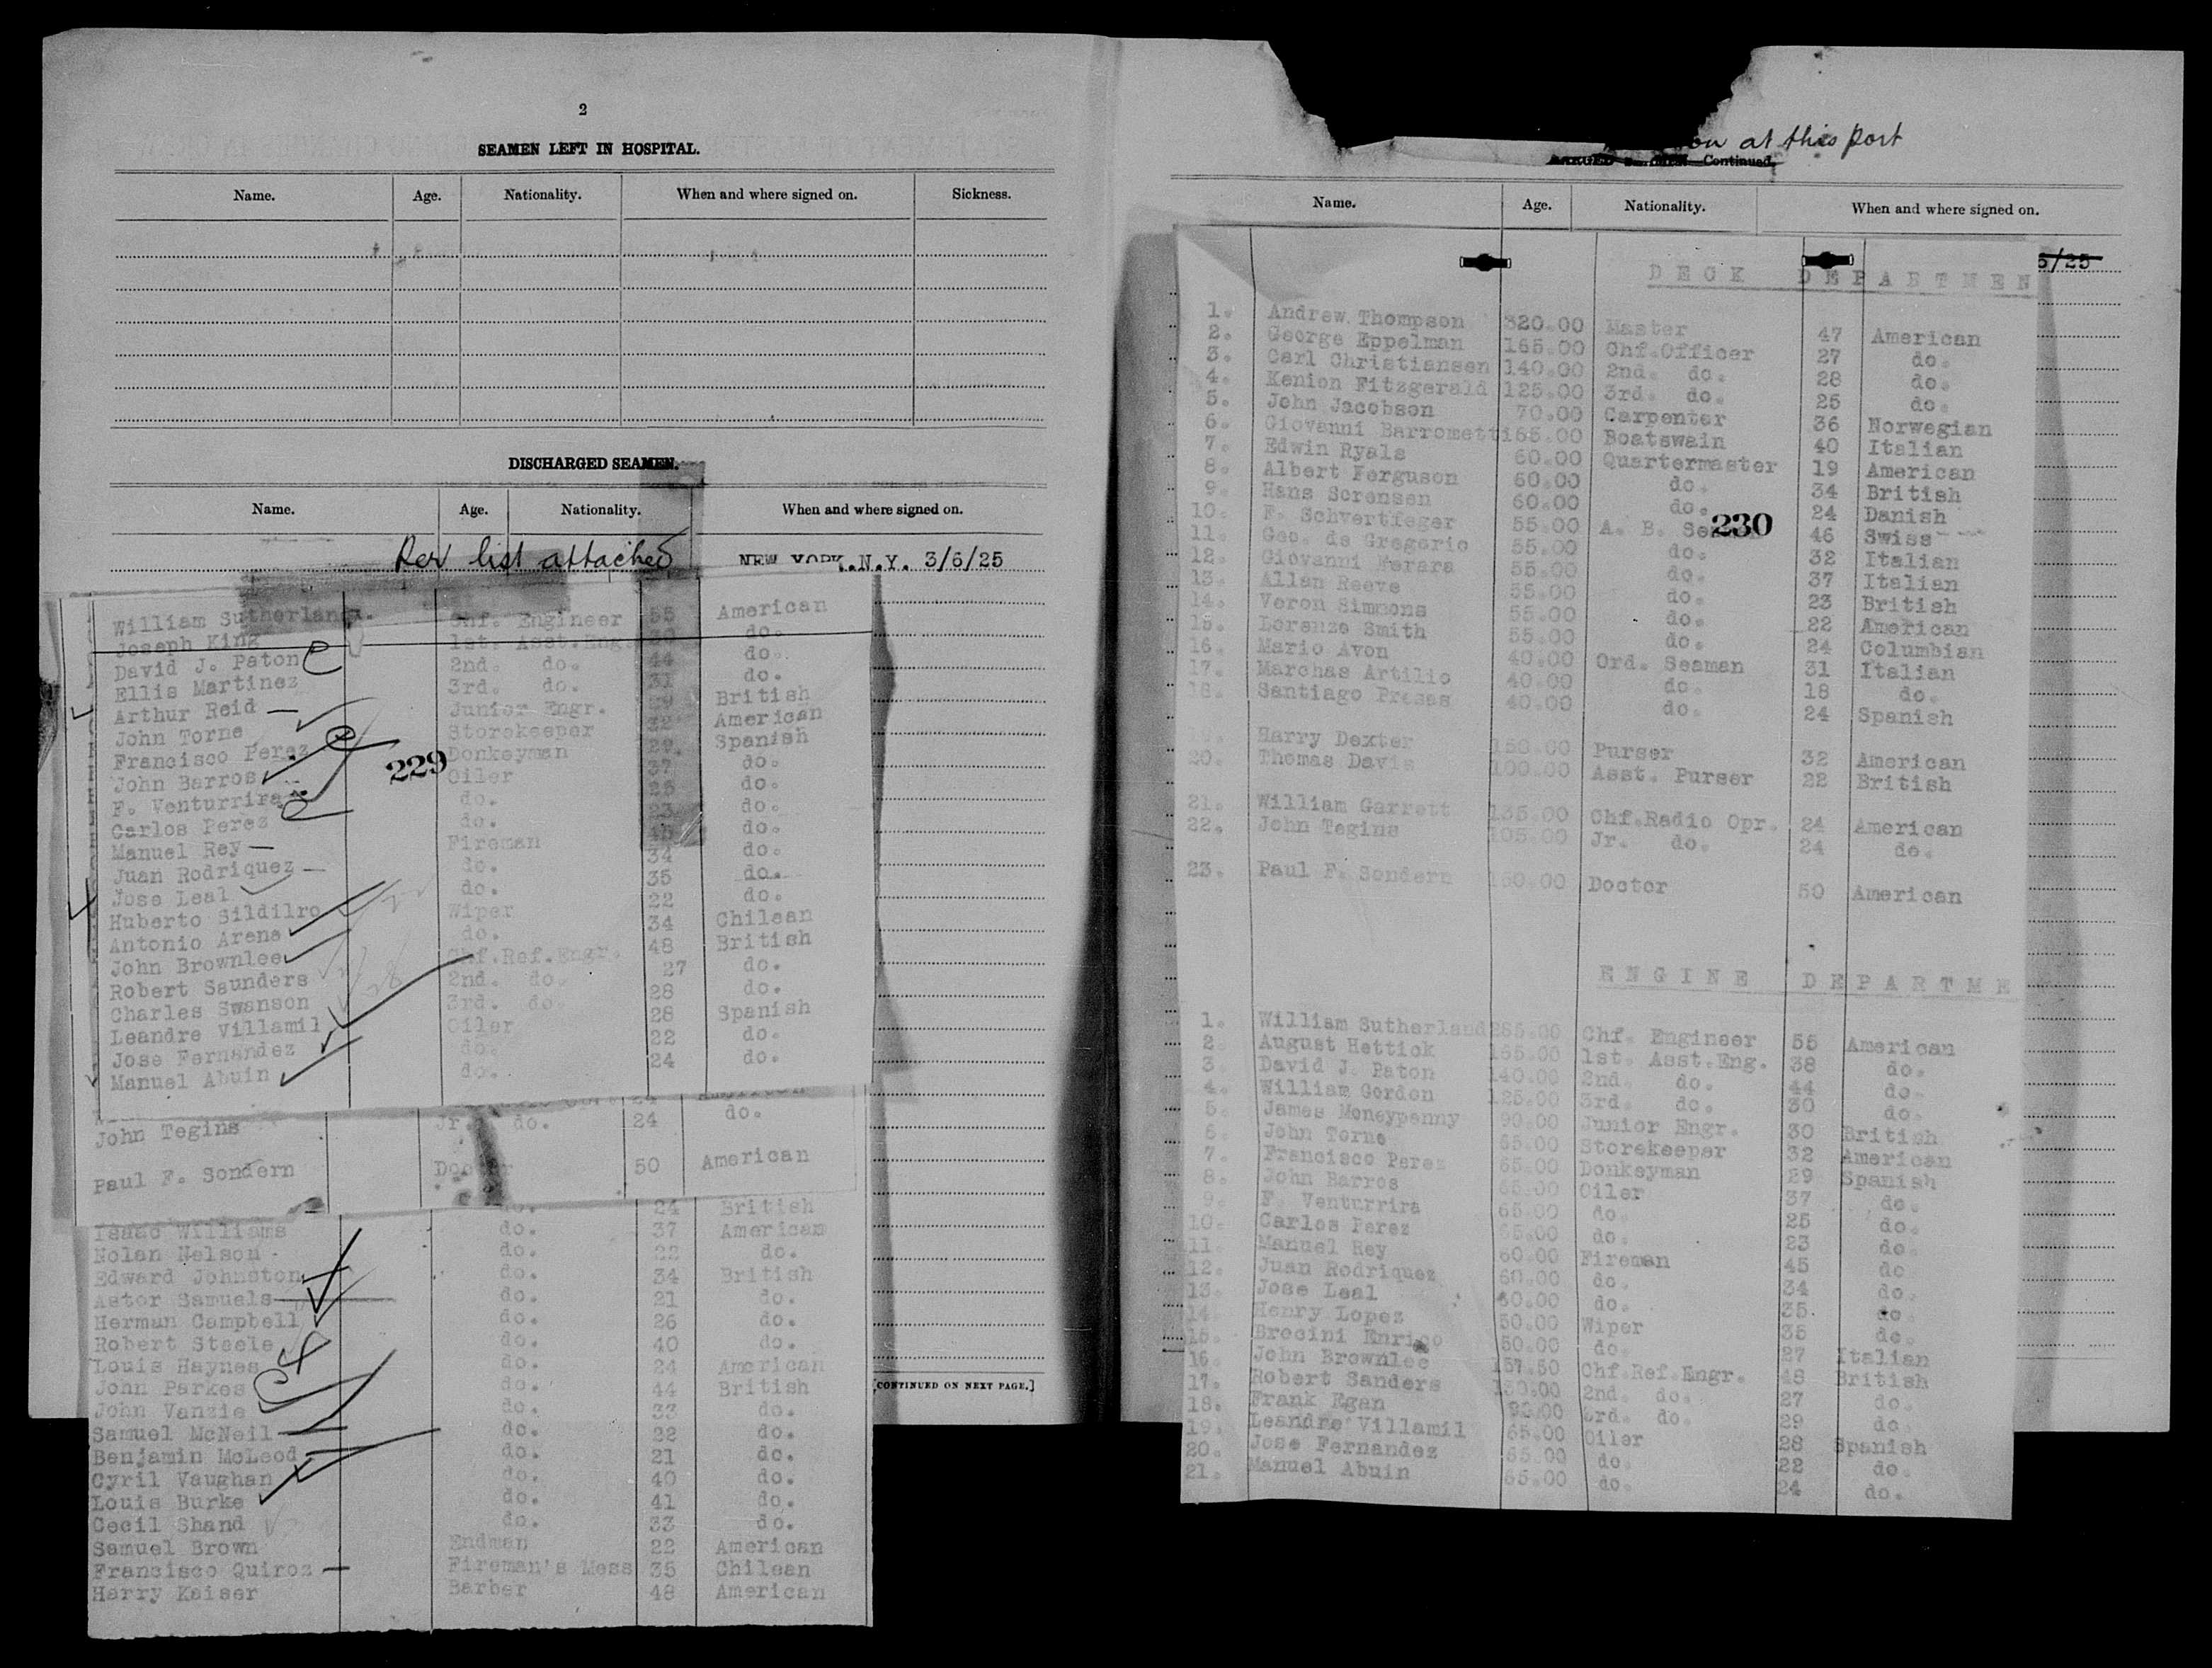 2
SEAMEN LEFT IN HOSPITAL.
Name. Age. Nationality. When and where signed on. Sickness.
DISCHARGED SEAMEN.
Name. Age. Nationality. When and where signed on.
Per list attached NEW YORK.N.Y. 3/6/25
William Sutherland Chf. Engineer 55 American
Joseph King 1st. Asst.Eng. do.
David J. Paton 2nd. do. 44 do.
Ellis Martinez 3rd. do. 31 do.
Arthur Reid Junior Engr. British
John Torne Storekeeper 32 American
Francisco Perez Donkeyman 29 Spanish
John Barros Oiler 37 do.
229
F. Venturrira do. 25 do.
Carlos Perez do. 23 do.
Manuel Rey Fireman 45 do.
Juan Rodriquez do. 34 do.
Jose Leal do. 35 do.
Huberto Sildilro Wiper 22 do.
Antonio Arena do. 34 Chilean
John Brownlee Chf.Ref.Engr. 48 British
Robert Saunders 2nd. do. 27 do.
Charles Swanson 3rd. do. 28 do.
Leandre Villamil Oiler 28 Spanish
Jose Fernandez do. 22 do.
Manuel Abuin do. 24 do.
John Tegins Jr. do. 24 do.
Paul F. Sondern Doctor 50 American
Isaac Williams do. 24 British
Nolan Nelson do. 37 American
Edward Johnston do. 22 do.
Astor Samuels do. 34 British
Herman Campbell do. 21 do.
Robert Steele do. 26 do.
Louis Haynes do. 40 do.
John Parkes do. 24 American
John Vanzie do. 44 British
Samuel McNeil do. 33 do.
Benjamin McLeod do. 22 do.
Cyril Vaughan do. 21 do.
Louis Burke do. 40 do.
Cecil Shand do. 41 do.
33 do.
Samuel Brown Endman 22 American
Francisco Quiroz Fireman's Mess 35 Chilean
Harry Kaiser Barber 48 American
[CONTINUED ON NEXT PAGE.]
on at this port
Continued.
Name. Age. Nationality. When and where signed on.
5/25
DECK DEPARTMEN
1. Andrew Thompson 320.00 Master 47 American
2. George Eppelman 165.00 Chf.Officer 27 do.
3. Carl Christiansen 140.00 2nd. do. 28 do.
4. Kenion Fitzgerald 125.00 3rd. do. 25 do.
5. John Jacobson 70.00 Carpenter 36 Norwegian
6. Giovanni Barrometti 65.00 Boatswain 40 Italian
7. Edwin Ryals 60.00 Quartermaster 19 American
8. Albert Ferguson 60.00 do. 34 British
9. Hans Sorensen 60.00 do. 24 Danish
10. F. Schvertfeger 55.00 A. B. Se 46 Swiss
230
11. Geo. de Gregorio 55.00 do. 32 Italian
12. Giovanni Ferara 55.00 do. 37 Italian
13. Allan Reeve 55.00 do. 23 British
14. Veron Simmons 55.00 do. 22 American
15. Lorenzo Smith 55.00 do. 24 Columbian
16. Mario Avon 40.00 Ord. Seaman 31 Italian
17. Marchas Artilio 40.00 do. 18 do.
18. Santiago Presas 40.00 do. 24 Spanish
19. Harry Dexter 150.00 Purser 32 American
20. Thomas Davis 100.00 Asst. Purser 22 British
21. William Garrett 135.00 Chf.Radio Opr. 24 American
22. John Tegins 105.00 Jr. do. 24 do.
23. Paul F. Sondern 150.00 Doctor 50 American
ENGINE DEPARTME
1. William Sutherland 285.00 Chf. Engineer 55 American
2. August Hettick 165.00 1st. Asst.Eng. 38 do.
3. David J. Paton 140.00 2nd. do. 44 do.
4. William Gordon 125.00 3rd. do. 30 do.
5. James Moneypenny 90.00 Junior Engr. 30 British
6. John Torne 65.00 Storekeeper 32 American
7. Francisco Perez 65.00 Donkeyman 29 Spanish
8. John Barros 65.00 Oiler 37 do.
9. F. Venturrira 65.00 do. 25 do.
10. Carlos Perez 65.00 do. 23 do.
11. Manuel Rey 60.00 Fireman 45 do
12. Juan Rodriquez 60.00 do. 34 do.
13. Jose Leal 60.00 do. 35. do.
14. Henry Lopez 50.00 Wiper 35 do.
15. Brocini Enrico 50.00 do. 27 Italian
16. John Brownlee 157.50 Chf.Ref.Engr. 48 British
17. Robert Sanders 130.00 2nd. do. 27 do.
18. Frank Egan 92.00 3rd. do. 29 do.
19. Leandre Villamil 65.00 Oiler 28 Spanish
20. Jose Fernandez 65.00 do. 22 do.
21. Manuel Abuin 65.00 do. 24 do.